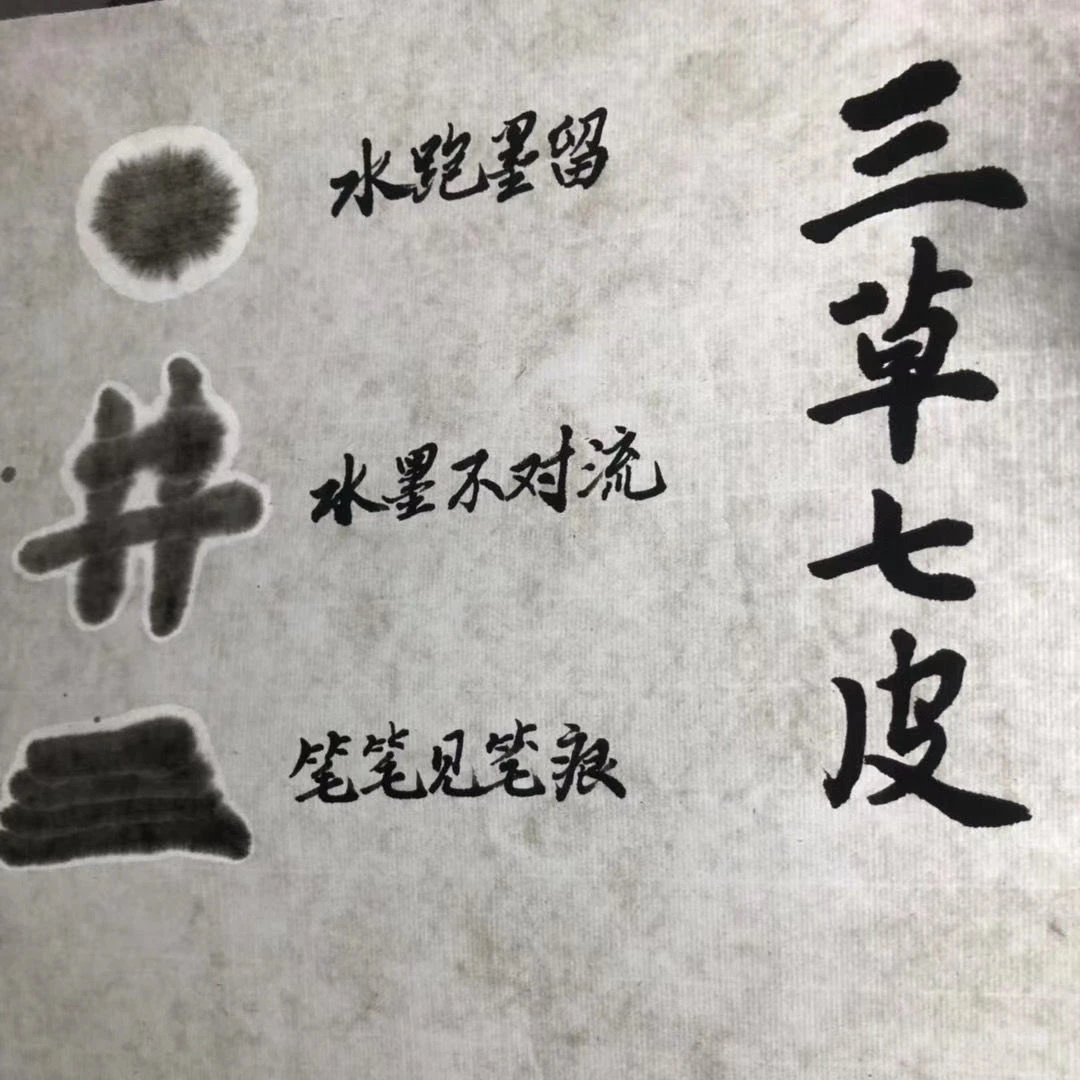 三草七皮
水跑墨留
水墨不对流
笔笔见笔痕